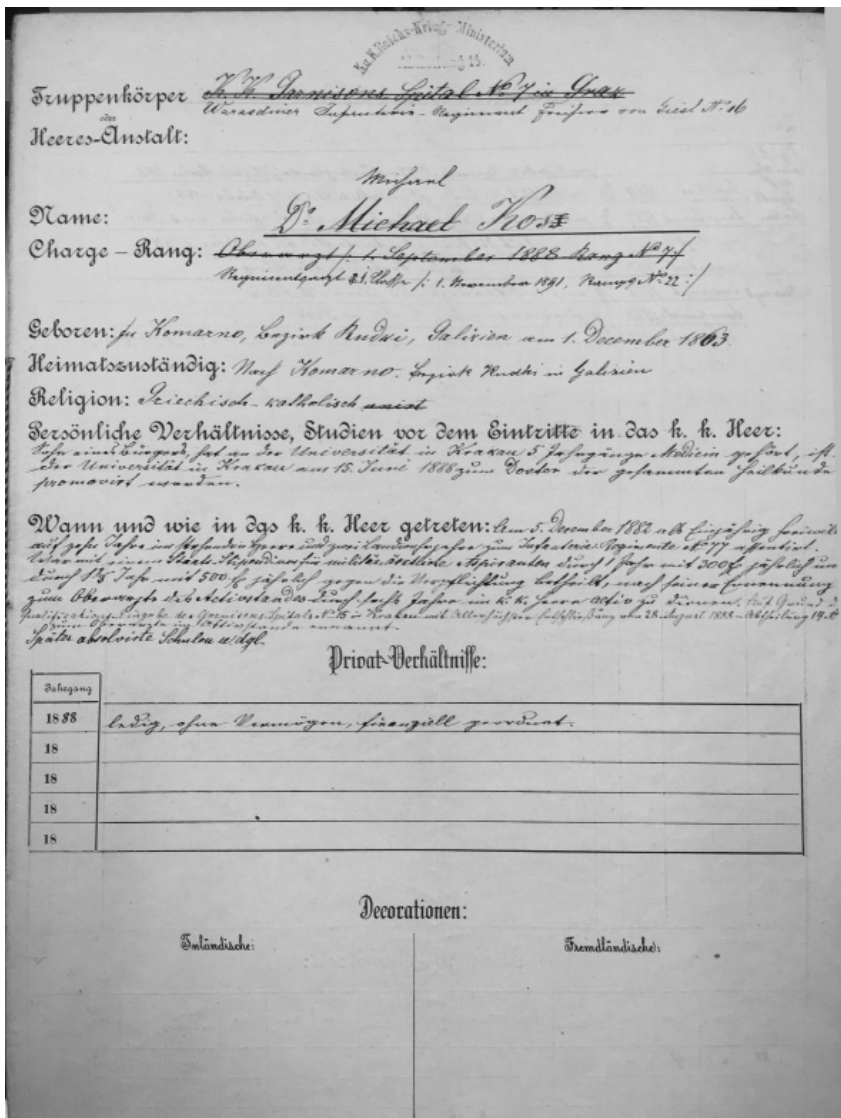 K.K. Reichs-Kriegs-Ministerium
Truppenkörper K. K. Garnisons Spital No 7 in Graz
oder Warasdiner Infanterie-Regiment Freiherr von Giesl No 16
Heeres-Anstalt:
Michael
Name: Dr. Michael Kos
Charge – Rang: Oberarzt /: 1. September 1888 Rang No 7 :/
Regimentsarzt Classe /: 1. November 1891, Rangs No 22 :/
Geboren: zu Komarno, Bezirk Rudki, Galizien am 1. December 1863.
Heimatszuständig: Nach Komarno. Bezirk Rudki in Galizien
Religion: Griechisch-katholisch unirt
Persönliche Verhältnisse, Studien vor dem Eintritte in das k. k. Heer:
Sohn eines Bürgers, hat an der Universität in Krakau 5 Jahrgänge Medicin gehört, ist
der Universität in Krakau am 15. Juni 1888 zum Doctor der gesammten Heilkunde
promovirt worden.
Wann und wie in das k. k. Heer getreten: Am 5. December 1882 als Einjährig freiwill
auf zehn Jahre im stehenden Heere und zwei Landwehrjahre zum Infanterie Regimente No 77 assentirt.
War mit einem Staats-Stipendium für militärärztliche Aspiranten durch 1 Jahr mit 300 fl jährlich un
durch Jahr mit 500 fl jährlich gegen die Verpflichtung betheilt, nach seiner Ernennung
zum Oberarzte des Activstandes durch sechs Jahre im k. k. Heere activ zu dienen. Auf Grund d
Qualifications-Eingabe des Garnisons-Spitals No 15 in Krakau mit Allerhöchster Entschließung vom 28. August 1888 – Abtheilung 14
zum Oberarzte im Activstande ernannt.
Später absolvirte Schulen u. dgl.
Privat-Verhältnisse:
Jahrgang
1888 ledig, ohne Vermögen, finanziell geordnet.
18
18
18
18
Decorationen:
Inländische: Fremdländische: